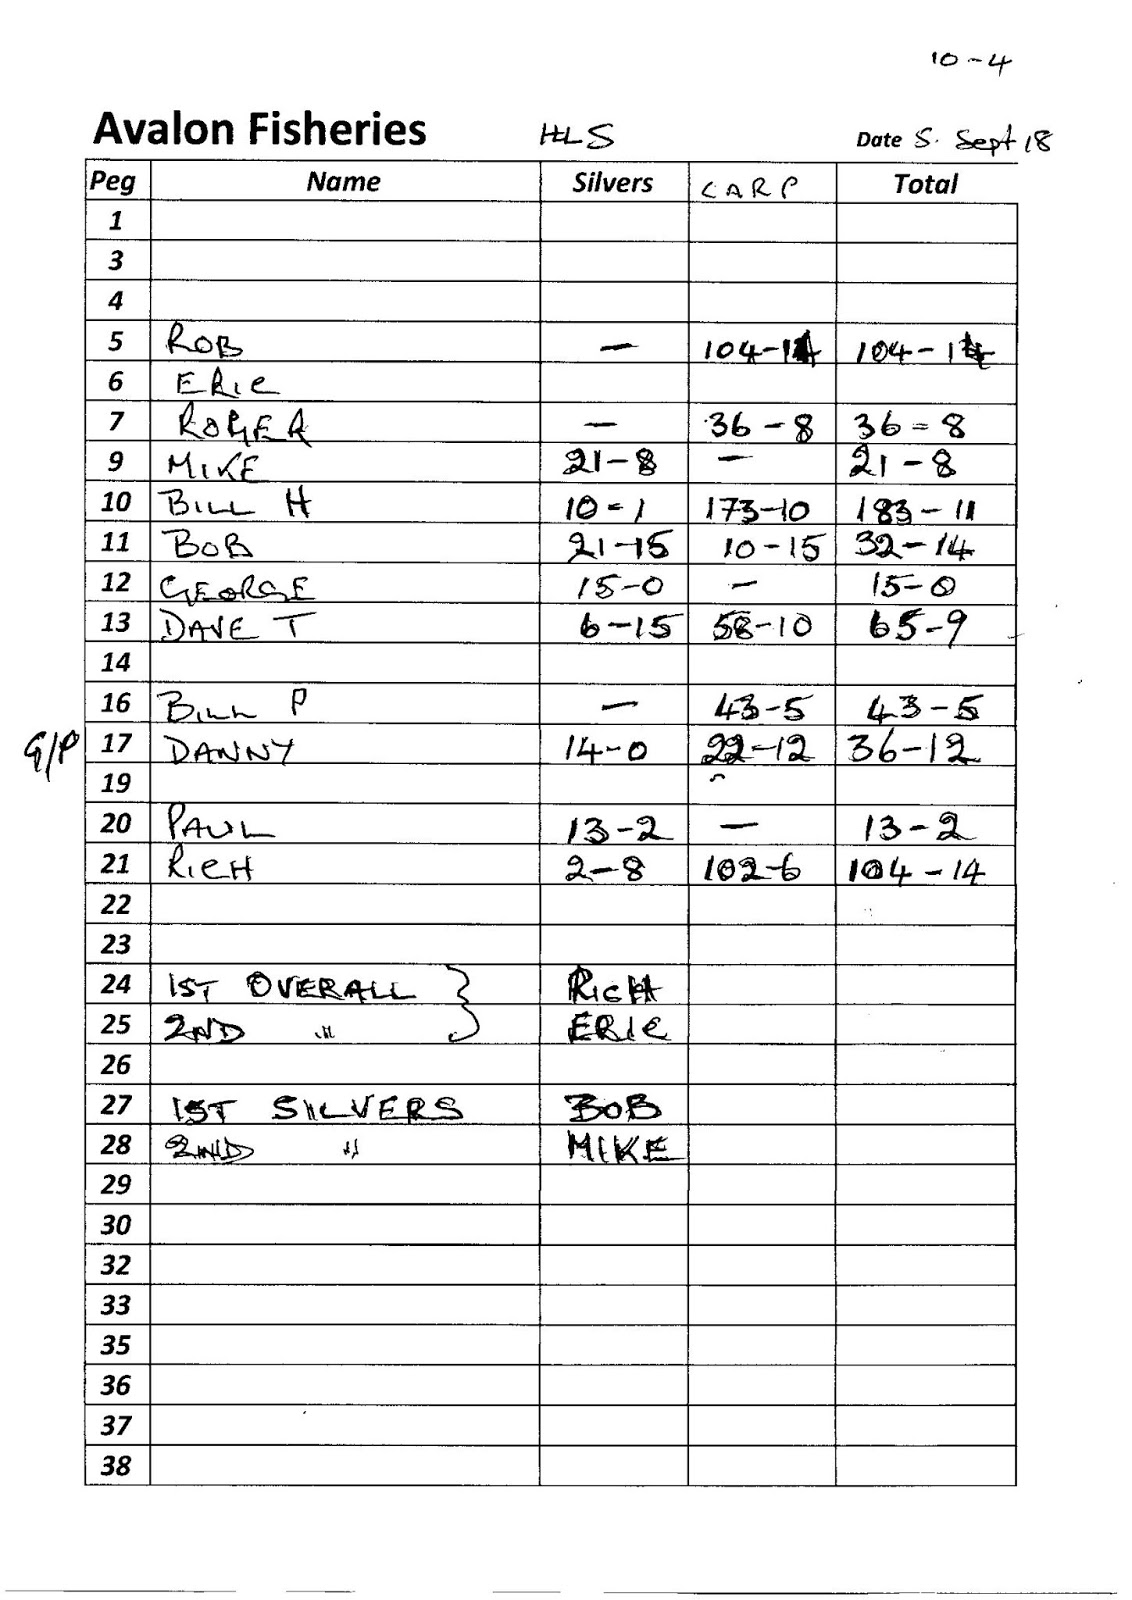 10-4
Avalon Fisheries HLS Date 5. Sept 18
Peg Name Silvers CARP Total
1
3
4
5 ROB — 104-14 104-14
6 ERIC
7 ROGER — 36-8 36=8
9 MIKE 21-8 — 21-8
10 BILL H 10=1 173-10 183-11
11 BOB 21-15 10-15 32-14
12 GEORGE 15-0 — 15-0
13 DAVE T 6-15 58-10 65-9
14
16 BILL P — 43-5 43-5
G/P 17 DANNY 14-0 22-12 36-12
19
20 PAUL 13-2 — 13-2
21 RICH 2-8 102-6 104-14
22
23
24 1ST OVERALL } RICH
25 2ND " ERIC
26
27 1ST SILVERS BOB
28 2ND " MIKE
29
30
32
33
35
36
37
38